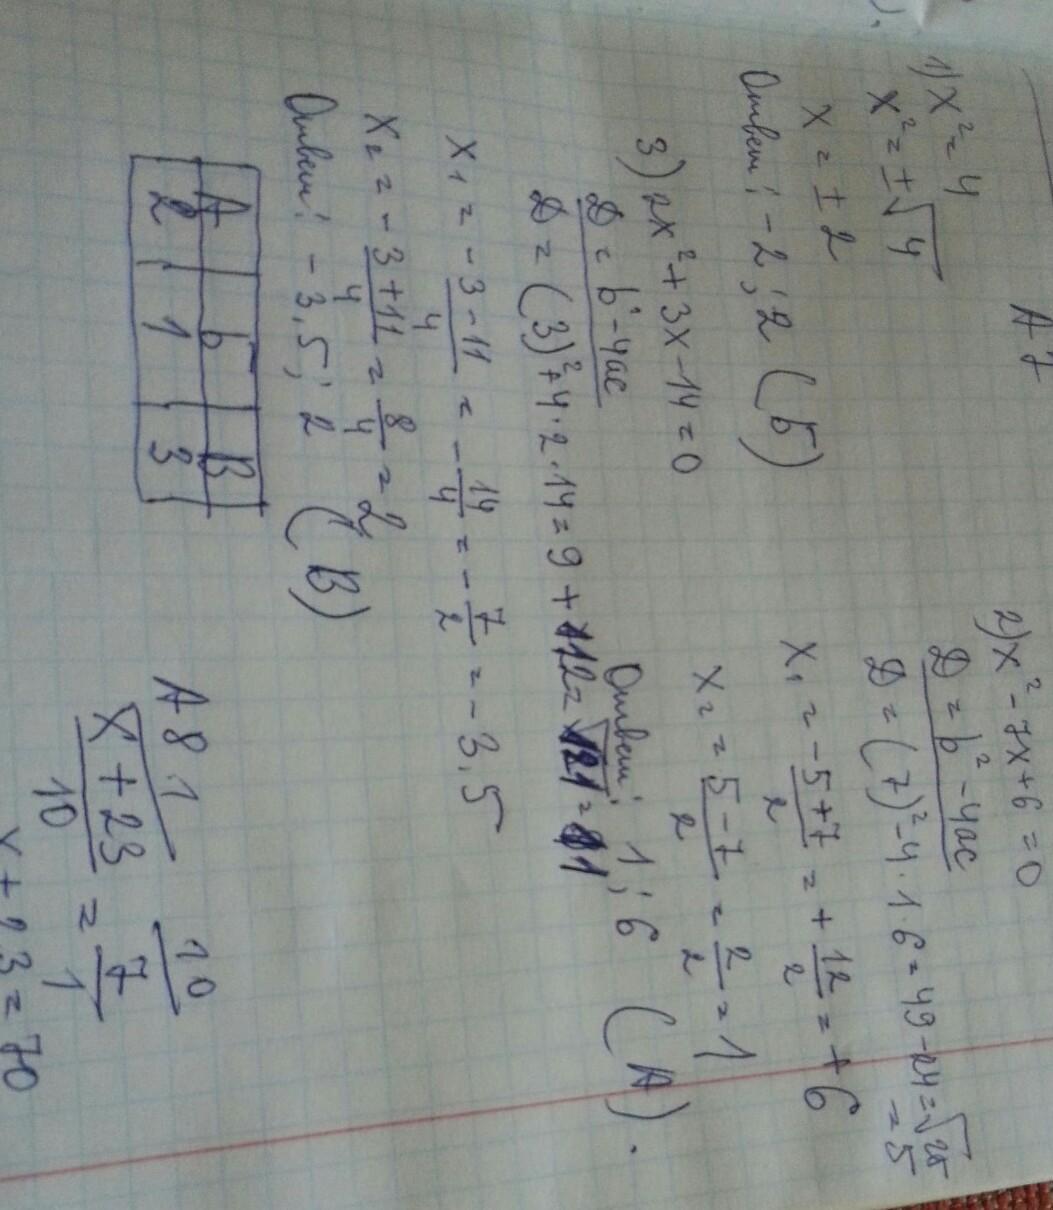 А7
1) x² = 4
x² = ±√4
x = ± 2
Ответ: -2; 2 (Б)
2) x² - 7x + 6 = 0
D = b² - 4ac
D = (7)² - 4 · 1 · 6 = 49 - 24 = √25
= 5
x₁ = -5+7/2 = + 12/2 = + 6
x₂ = 5-7/2 = 2/2 = 1
Ответ: 1; 6 (А).
3) 2x² + 3x - 14 = 0
D = b² - 4ac
D = (3)² + 4 · 2 · 14 = 9 + 112 = √121 = 11
x₁ = - 3-11/4 = - 14/4 = - 7/2 = - 3,5
x₂ = - 3+11/4 = 8/4 = 2
Ответ: - 3,5; 2 (В)
А Б В
2 1 3
А8
1 10
x + 23/10 = 7/1
x + 23 = 70